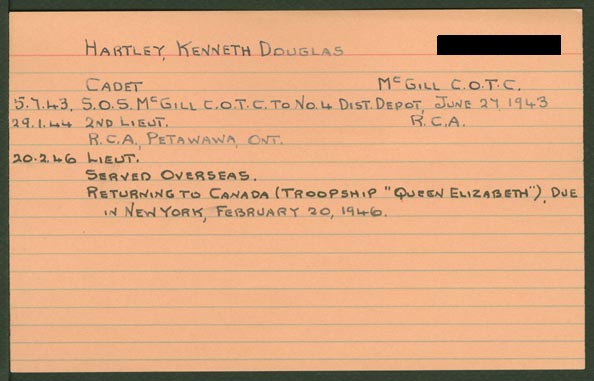 HARTLEY, KENNETH DOUGLAS
CADET McGILL C.O.T.C.
5.7.43. S.O.S. McGILL C.O.T.C. TO NO.4 DIST. DEPOT, JUNE 27, 1943
29.1.44 2ND LIEUT. R.C.A.
R.C.A., PETAWAWA, ONT.
20.2.46 LIEUT.
SERVED OVERSEAS.
RETURNING TO CANADA (TROOPSHIP "QUEEN ELIZABETH"), DUE
IN NEW YORK, FEBRUARY 20, 1946.